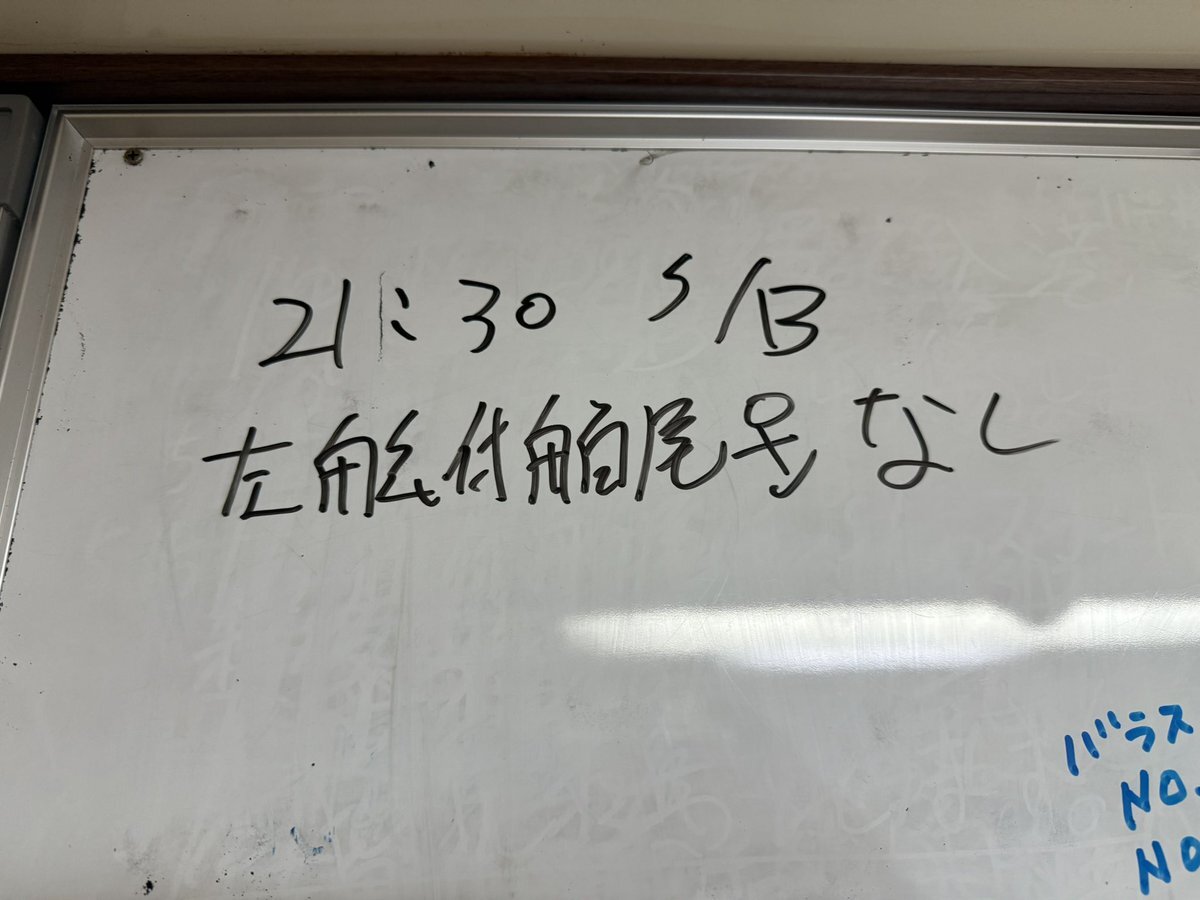 21:30 S/B
左舷付舶尾号なし
バラス
NO.
NO